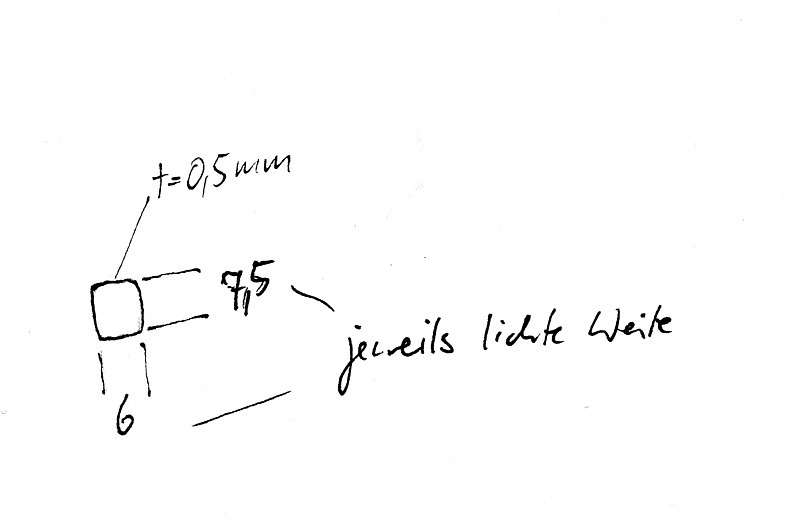 t=0,5mm
7,5
jeweils lichte Weite
6